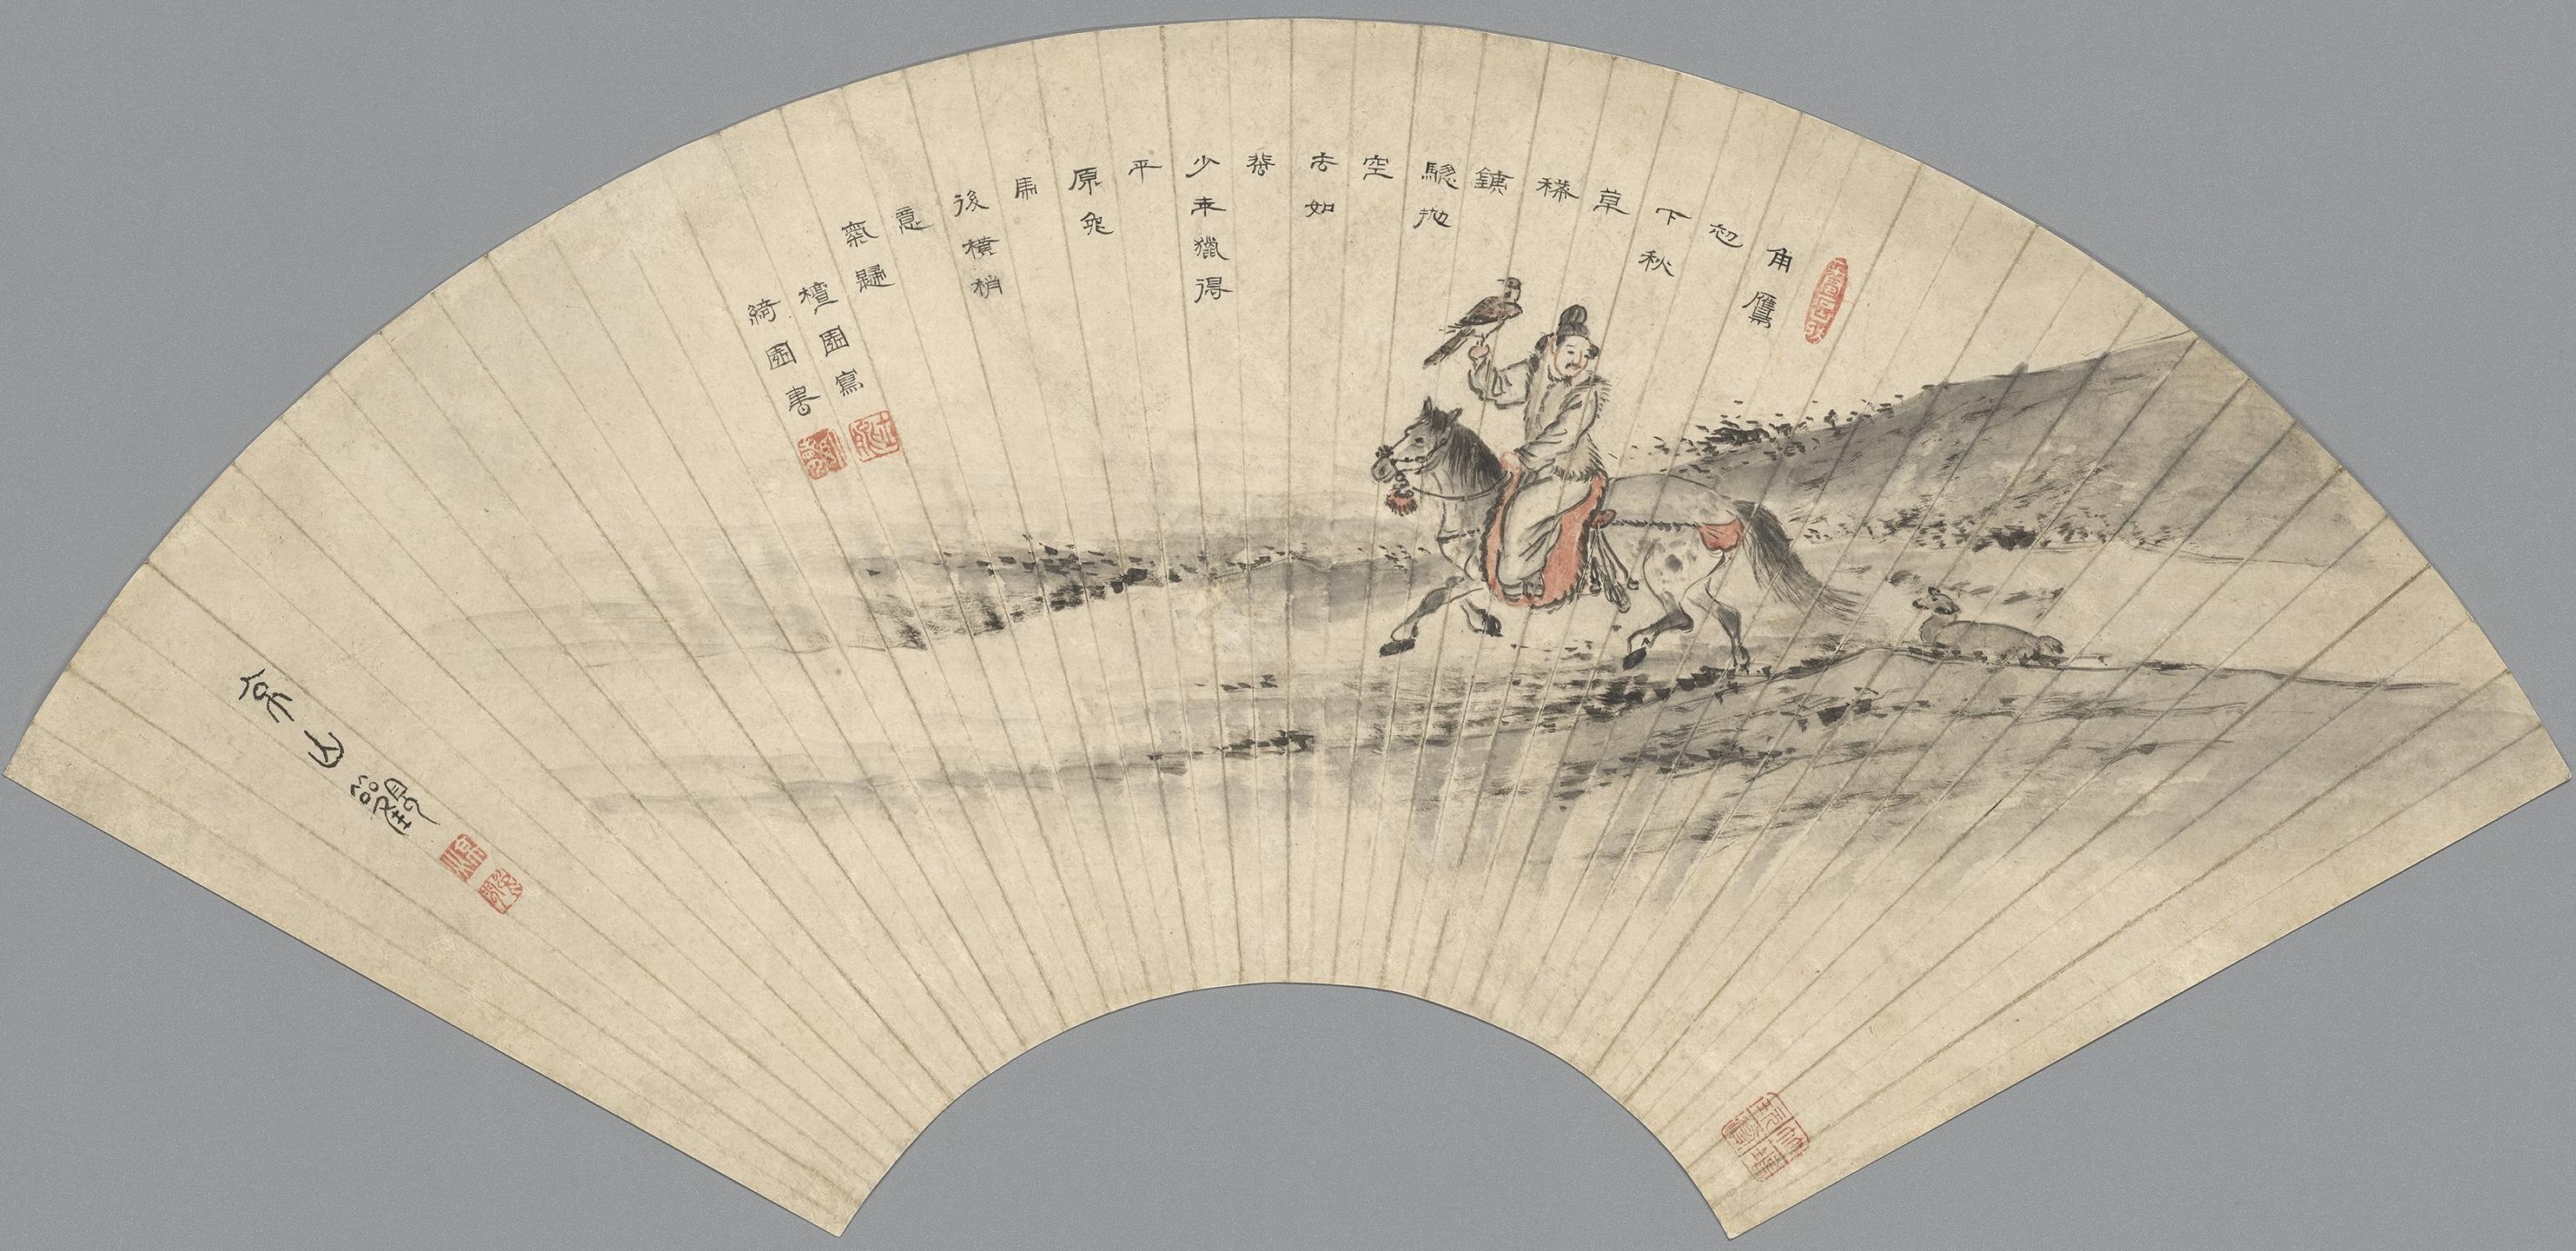 角鷹
初
下秋
草
稀
銕
驄抛
空
去如
蜚
少年獵得
平
原兔
馬
後橫梢
意
氣歸
檀園寫
綺園書